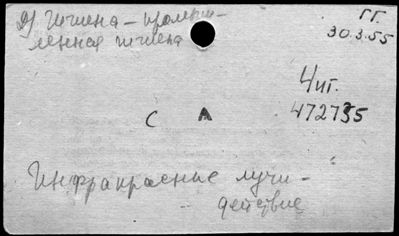 2) Гигиена - промыш-
ленная гигиена
ГГ.
30.3.55
4 иг.
472735
С А
Инфракрасные лучи -
действие